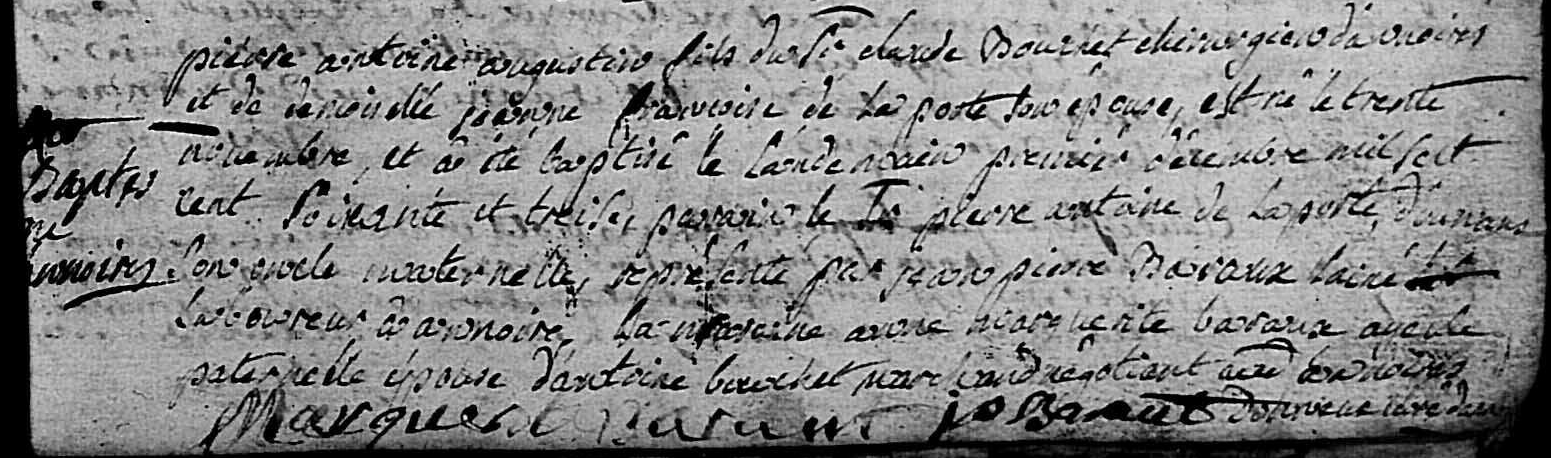 pierre antoine augustin fils du Sr claude Bouchet chirurgien d'annoires
et de demoiselle jeanne francoise de la porte son épouse, est né le trente
novembre, et a été baptisé le landemain premier décembre mil sept
cent soixante et treise, parrain le Sr pierre antoine de la porte, d'ounans
son oncle maternelle, représenté par jean pierre Bavaux lainé
laboureur a annoire, la maraine anne marguerite bavaux ayeule
paternelle épouse d'antoine bouchet marchand négotiant aud annoires
Baptes
me
annoires
Marguerite Bavaux jp Bavaux